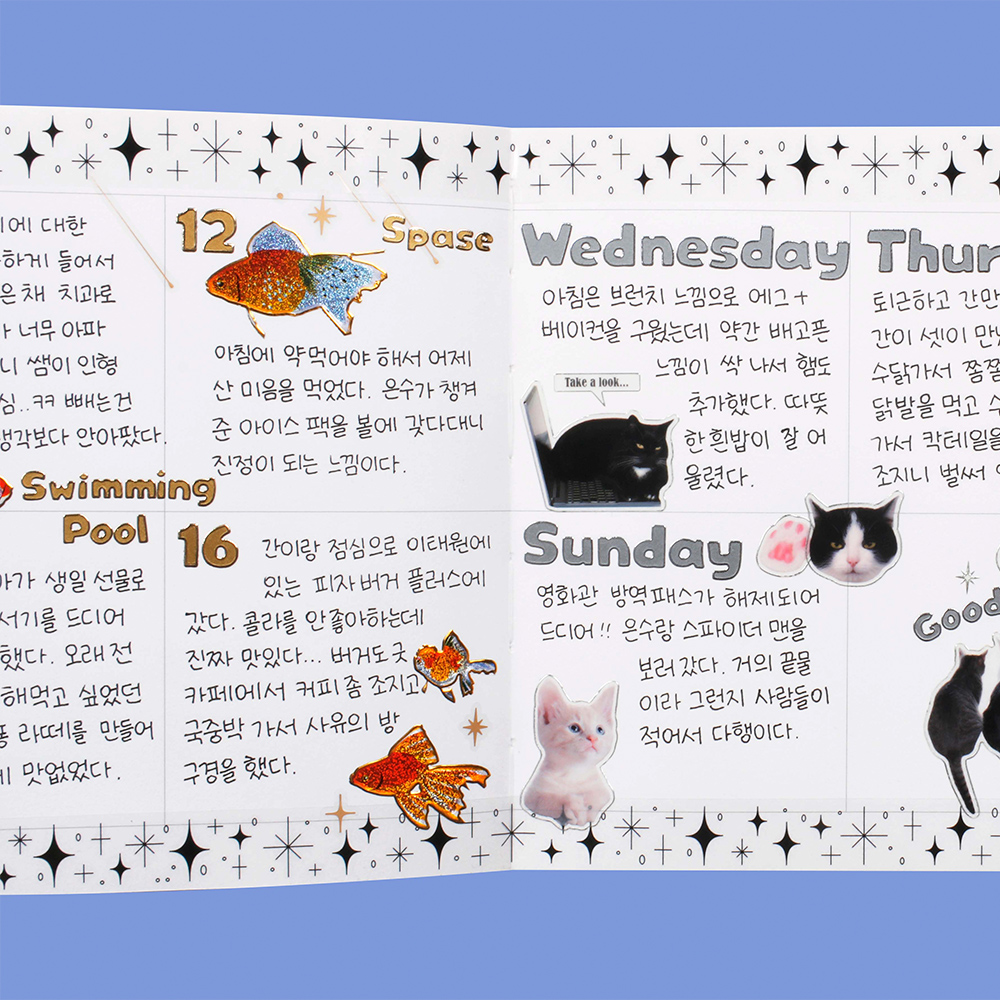 에 대한
하게 들어서
은채 치과로
너무 아파
니 쌤이 인형
심..ㅋㅋ 빼는건
생각보다 안아팠다.
12
Spase
아침에 약먹어야 해서 어제
산 미음을 먹었다. 은수가 챙겨
준 아이스 팩을 볼에 갖다대니
진정이 되는 느낌이다.
Swimming
Pool
가 생일 선물로
서기를 드디어
했다. 오래전
해먹고 싶었던
퐁 라떼를 만들어
게 맛없었다.
16
간이랑 점심으로 이태원에
있는 피자버거 플러스에
갔다. 콜라를 안좋아하는데
진짜 맛있다... 버거도굿
카페에서 커피 좀 조지고
국중박 가서 사유의 방
구경을 했다.
Wednesday
아침은 브런치 느낌으로 에그+
베이컨을 구웠는데 약간 배고픈
느낌이 싹 나서 햄도
추가했다. 따뜻
한 흰밥이 잘 어
울렸다.
Take a look...
Thur
퇴근하고 간만
간이 셋이 만났
수닭가서 쫌쫄
닭발을 먹고
가서 칵테일을
조지니 벌써
Sunday
영화관 방역패스가 해제되어
드디어!! 은수랑 스파이더 맨을
보러갔다. 거의 끝물
이라 그런지 사람들이
적어서 다행이다.
Good